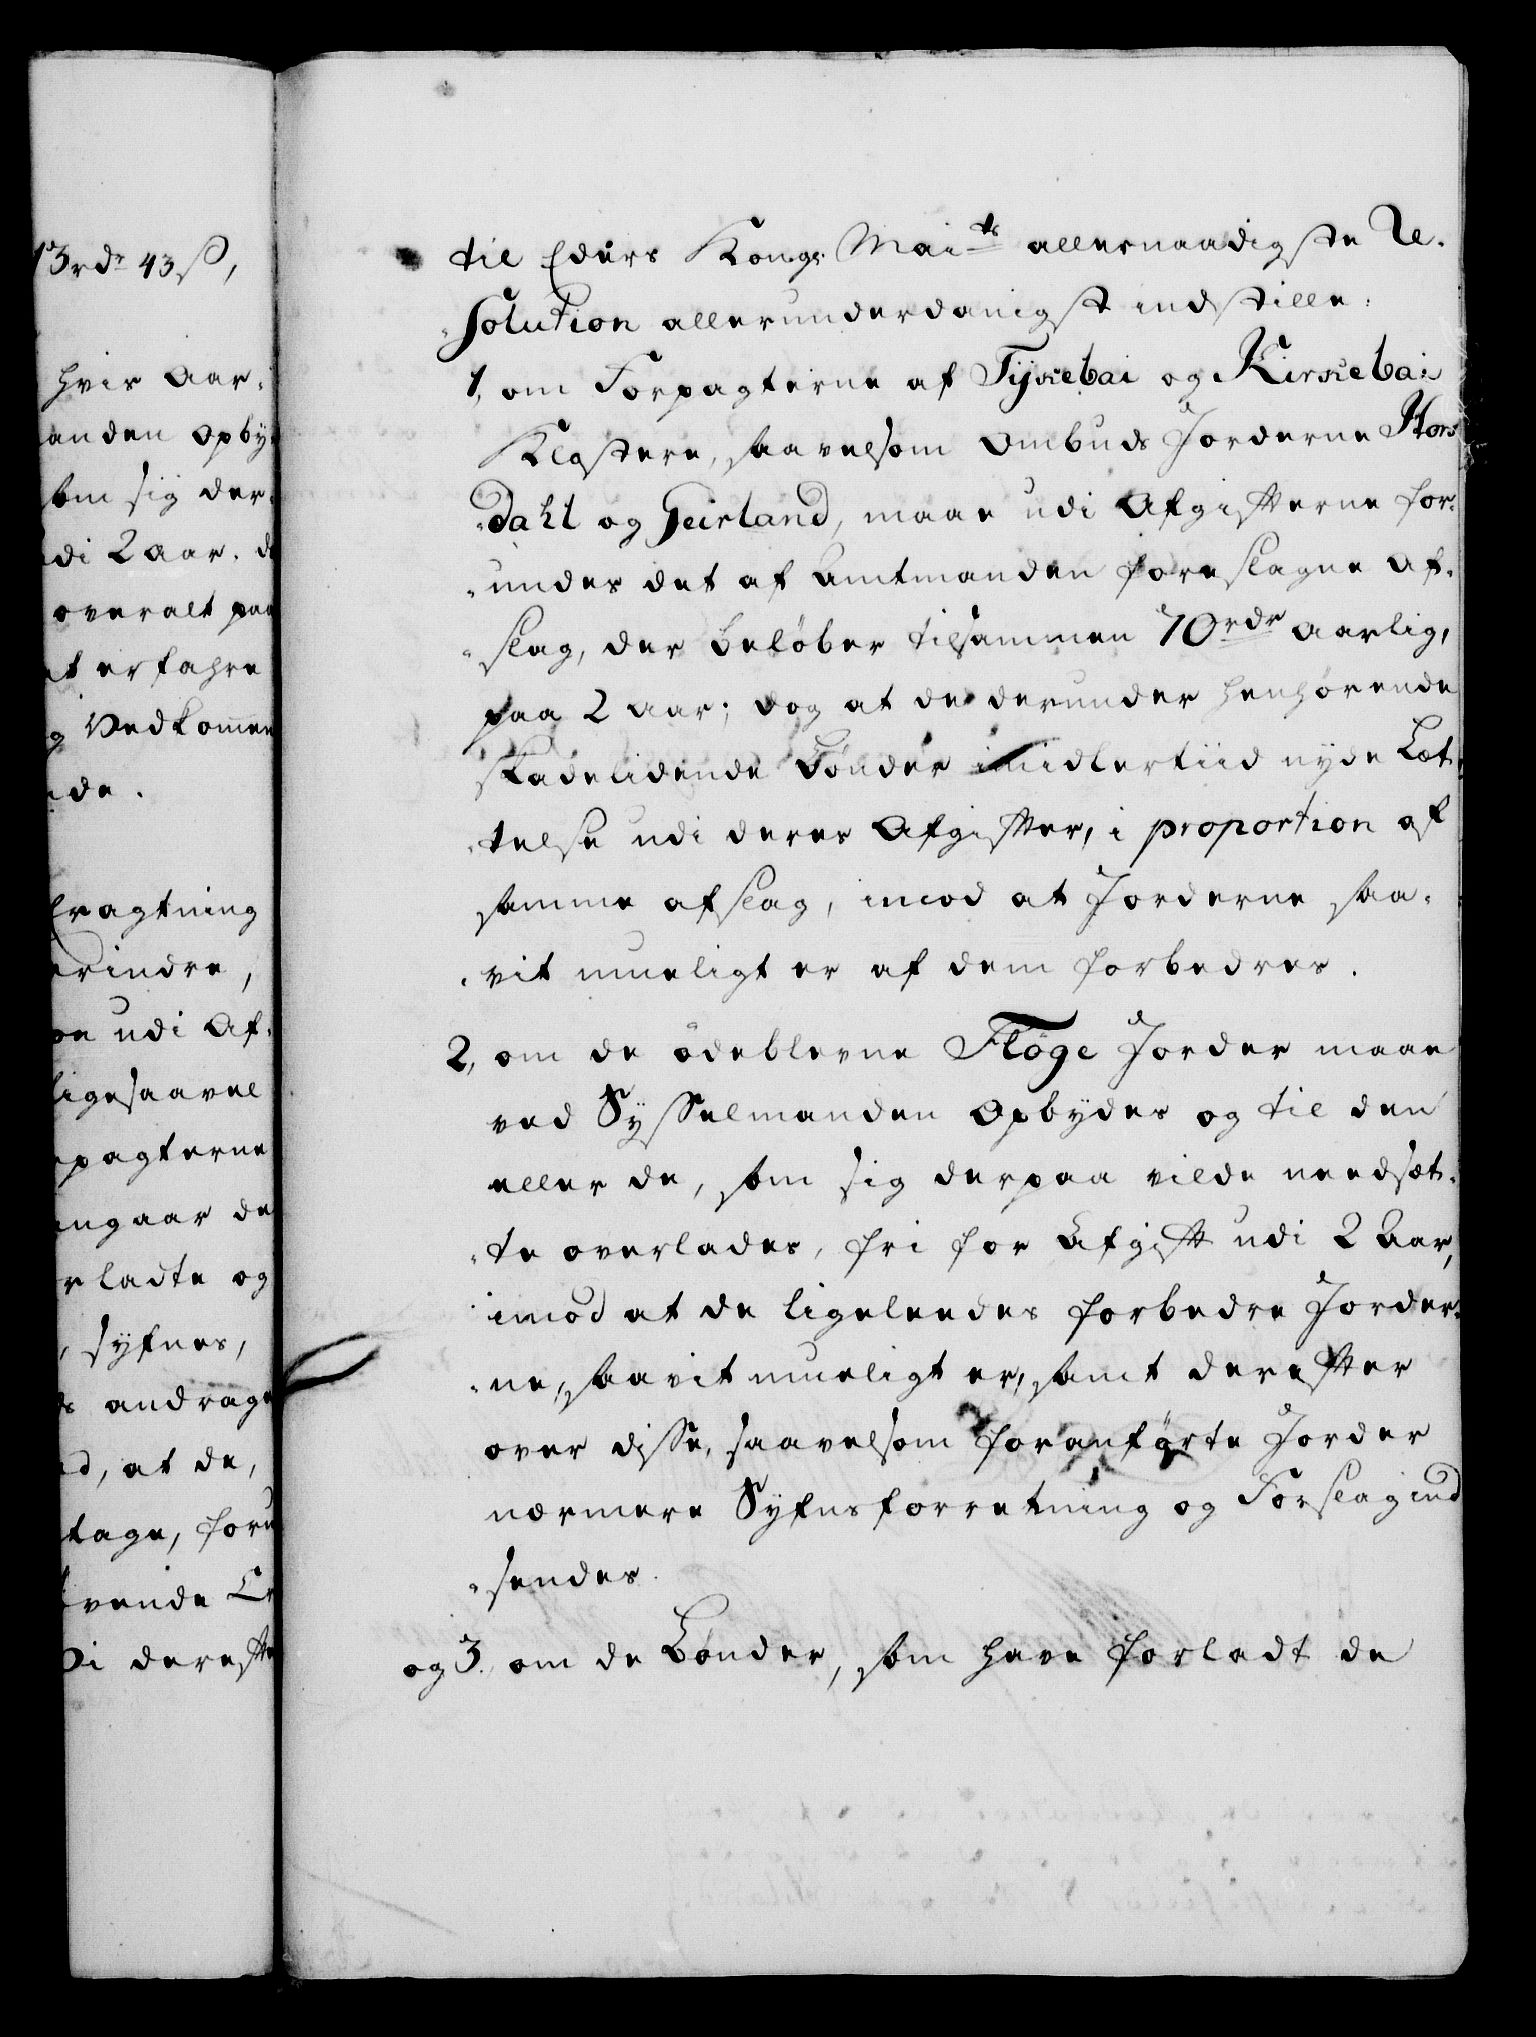 13rdr 43 ß,
hvis Aar-
anden Opby-
som sig der-
di 2 Aar. d
overalt paa
at erfahre
g Vedkommen
de.
Eragtning
erindre,
udi Af-
ligesaavel
pagterne
angaar de
rladte og
, syfnes,
andrage
d, at de,
tage, foru
vende
Vi derefte
til Eders Kongl. Maits allernaadigste Re-
solution allerunderdanigst indstille:
1, om Forpagterne af Tyksebai og Kirkebai
Klostere, saavelsom Ombuds Jorderne Hørs
dahl og Geirland, maae udi Afgifterne for-
undes det af Amtmanden foreslagne Af-
slag, der beløber tilsammen 70 rdr aarlig,
paa 2 Aar; dog at de derunder henhørende
skadelidende Bønder imidlertiid nyde Læt-
telse udi deres Afgifter, i proportion af
samme afslag, imod at Jorderne saa-
vit mueligt er af dem forbedres.
2, om de ødeblevne Fløge Jorder maae
ved Sysselmanden Opbydes og til den
eller de, som sig derpaa vilde needsæt-
te overlades, fri for Afgift udi 2 Aar,
imod at de ligeleedes forbedre Jorder-
ne, saavit mueligt er, samt derefter
over disse, saavelsom foranførte Jorder
nærmere Syfnsforretning og Forslag ind
sendes.
og 3., om de Bønder, som have forladt de